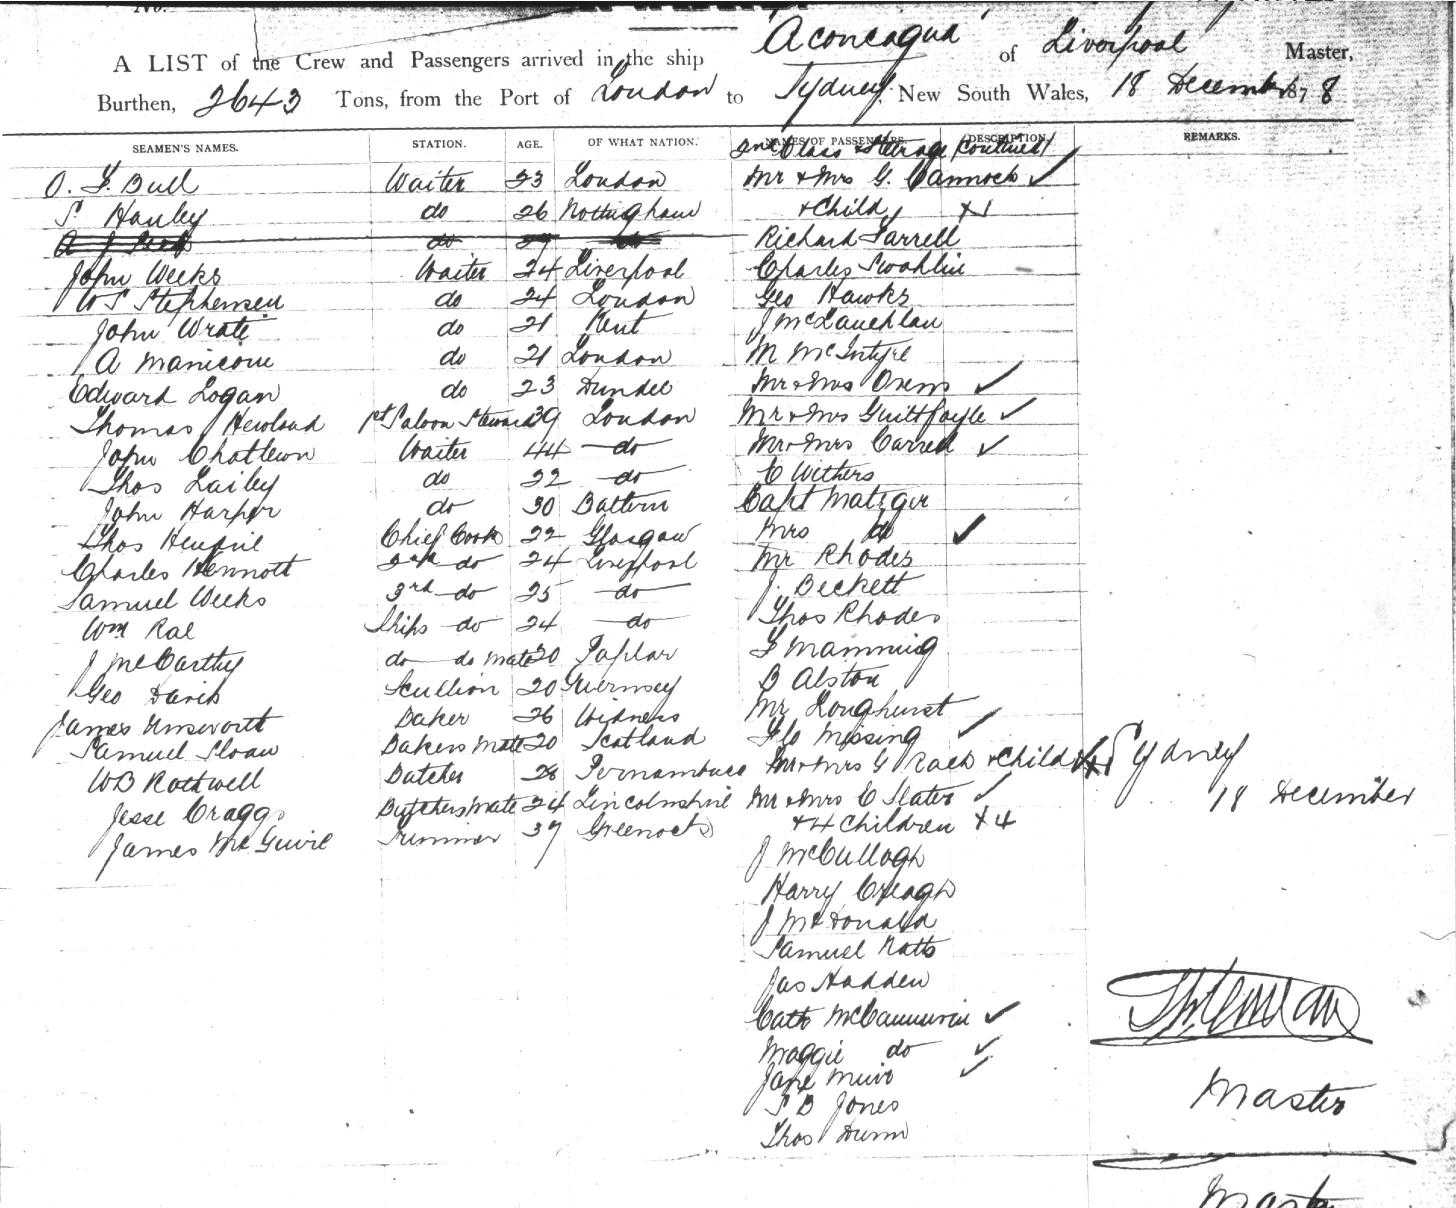 No.
'Aconcagua'
A LIST of the Crew and Passengers arrived in the ship of Liverpool Master,
Burthen, 2643 Tons, from the Port of London to Sydney, New South Wales, 18 December 1878
SEAMEN'S NAMES. STATION. AGE. OF WHAT NATION. NAMES OF PASSENGERS. DESCRIPTION. REMARKS.
2nd Class & Steerage (continued)
Bull Waiter 23 London Mr & Mrs G. Cannock ✓
S Hanley do 26 Nottingham & Child X1
A J do 29 do Richard Farrell
John Weeks Waiter 24 Liverpool Charles
W S Stephensen do 24 London Geo Hawks
John Wrate do 21 Kent J McLauchlan
A Manicom do 21 London M McIntyre
Edward Logan do 23 Dundee Mr & Mrs Owens ✓
Thomas Newland 1st Saloon Steward 39 London Mr & Mrs ✓
John Waiter 44 do Mr & Mrs ✓
Thos Lailey do 22 do C Withers
John Harper do 30 Capt
Thos Chief Cook 22 Glasgow Mrs do ✓
Charles 2nd do 24 Liverpool Mr Rhodes
Samuel Weeks 3rd do 25 do J. Beckett
Wm Rae Ships do 24 do Thos Rhodes
J McCarthy do do Mate 20 Poplar F Manning
Geo Davis Scullion 20 Guernsey B Alston
James Unsworth Baker 26 Widness Mr Longhurst
Samuel Sloan Bakers Mate 20 Scotland Flo Missing ✓
WB Rothwell Butcher 28 Pernambuco Mr & Mrs G & Child X1 Sydney
Jesse Craggs Butchers Mate 24 Lincolnshire Mr & Mrs C Slater ✓ 18 December
James McGuire 37 Greenock & 4 Children X4
J McCullagh
Harry Creagh
J McDonald
Samuel Natts
Jas Hadden
Cath ✓
Maggie do ✓
Jane Muir ✓
S B Jones
Master
Thos Dunn
Master